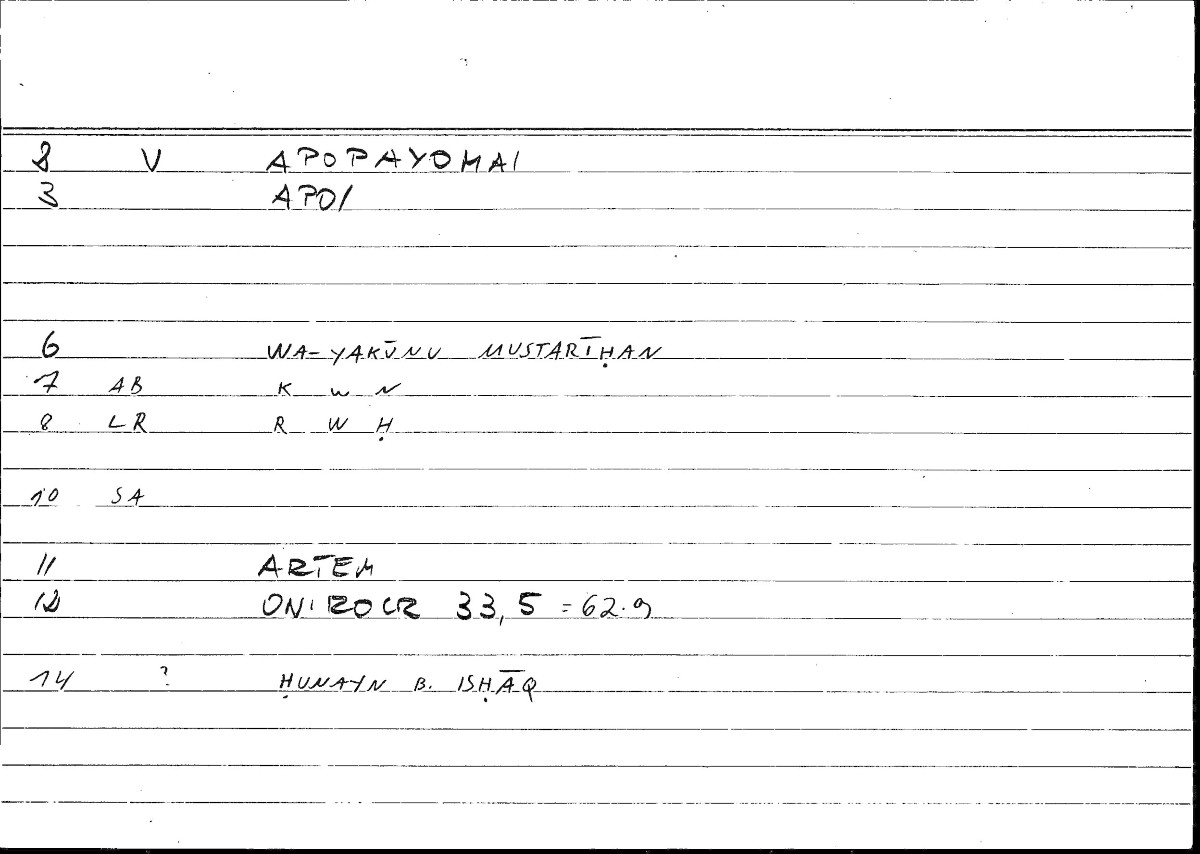 8 V APOPAYOMAI
3 APOI
6 WA-YAKŪNU MUSTARĪḤAN
7 AB K W N
8 LR R W Ḥ
10 SA
11 ARTEM
12 ONIROCR 33,5 = 62.9
14 ? ḤUNAYN B. ISḤĀQ